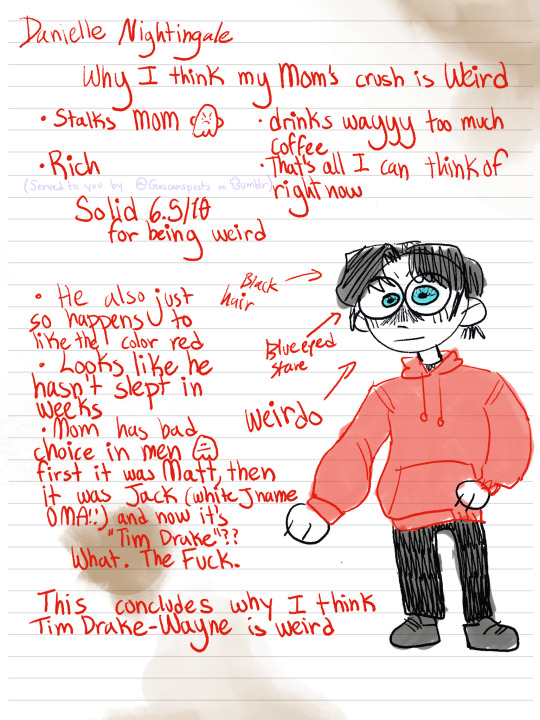 Danielle Nightingale
Why I think my Mom's crush is Weird
• Stalks Mom
• drinks wayyy too much
coffee
• Rich
• That's all I can think of
right now
(Served to you by @Gascansposts on Tumblr)
Solid 6.5/10
for being weird
Black
hair
Blue eyed
stare
weirdo
• He also just
so happens to
like the color red
• Looks like he
hasn't slept in
weeks
• Mom has bad
choice in men
first it was Matt, then
it was Jack (white J name
OMA!!) and now it's
"Tim Drake"??
What. The Fuck.
This concludes why I think
Tim Drake-Wayne is weird